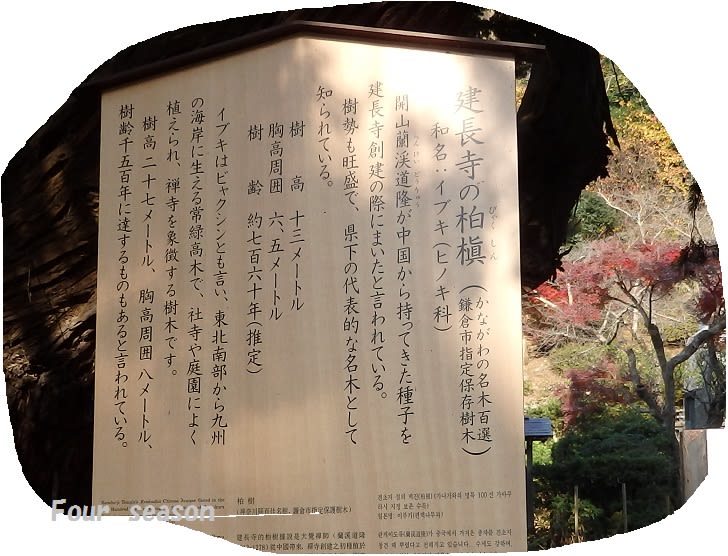 建長寺の柏槇
びゃくしん
(かながわの名木百選
鎌倉市指定保存樹木)
和名：イブキ(ヒノキ科)
開山蘭渓道隆が中国から持ってきた種子を
らんけいどうりゅう
建長寺創建の際にまいたと言われている。
樹勢も旺盛で、県下の代表的な名木として
知られている。
樹高 十三メートル
胸高周囲 六、五メートル
樹齢 約七百六十年(推定)
イブキはビャクシンとも言い、東北南部から九州
の海岸に生える常緑高木で、社寺や庭園によく
植えられ、禅寺を象徴する樹木です。
樹高 二十七メートル、胸高周囲 八メートル、
樹齢千五百年に達するものもあると言われている。
柏樹
(神奈川縣百佳名樹、鎌倉市指定保護樹木)
建長寺的柏樹據說是大覺禪師(蘭溪道隆
Four season